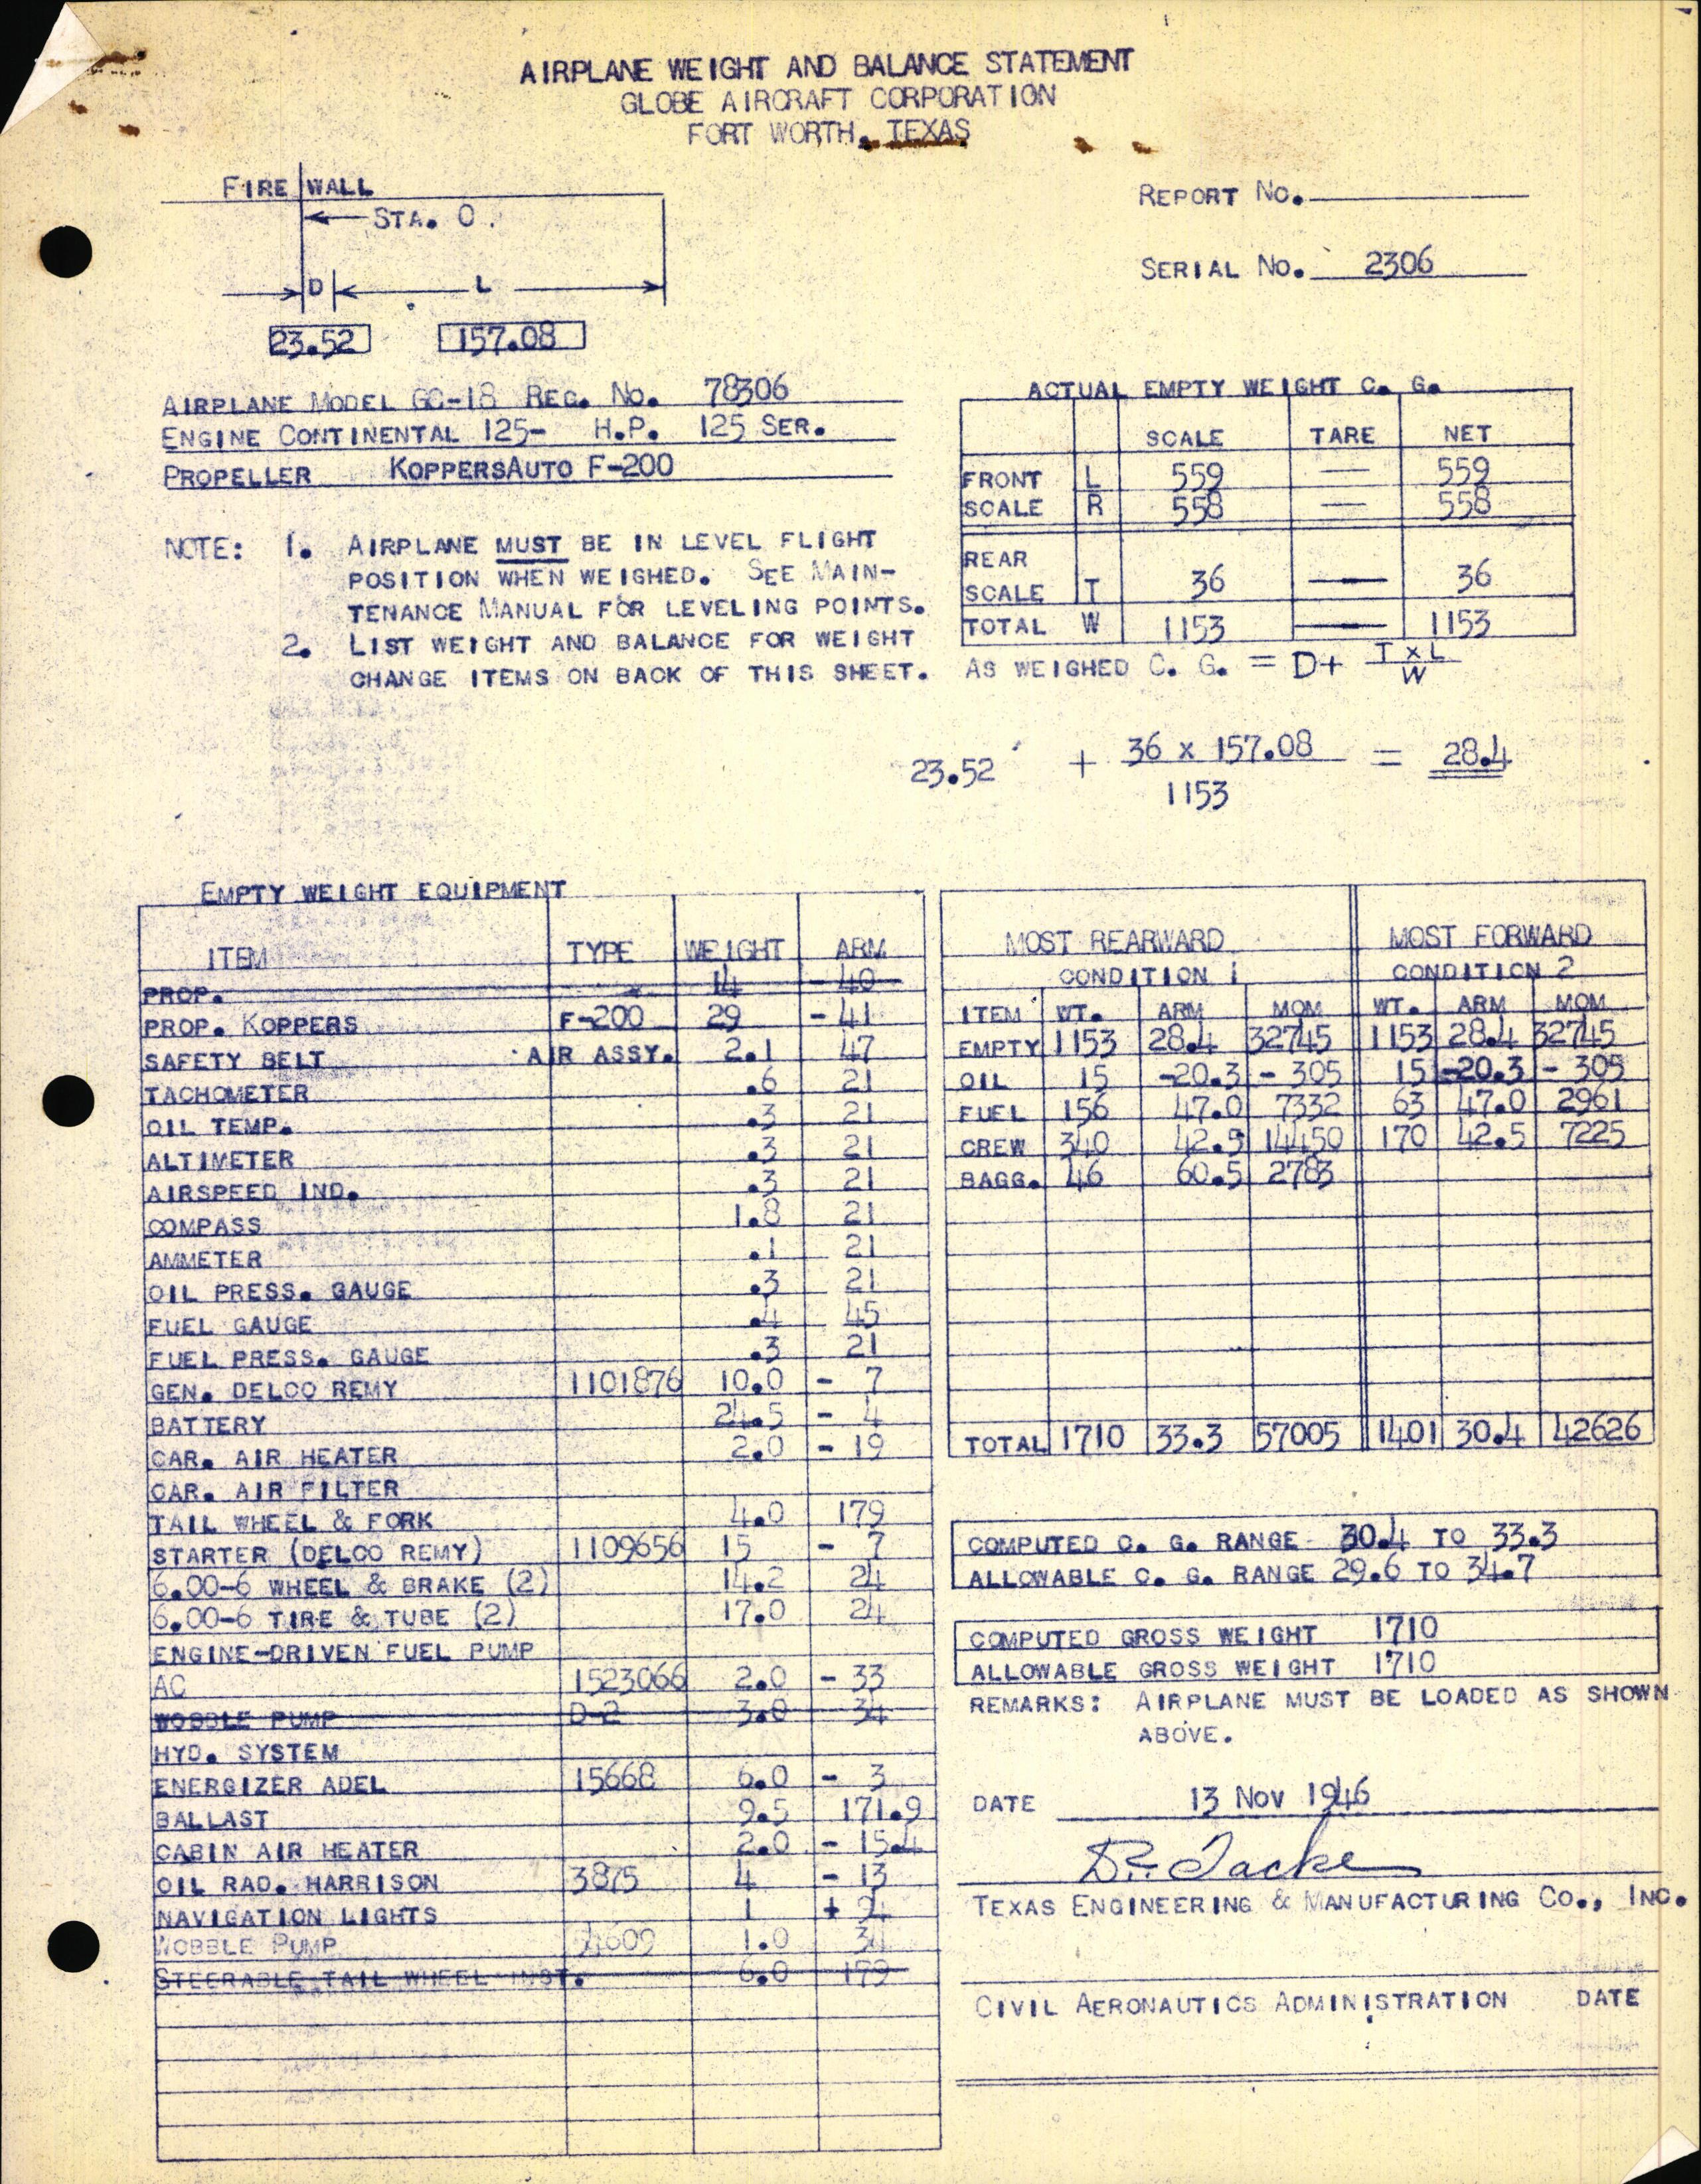 AIRPLANE WEIGHT AND BALANCE STATEMENT
GLOBE AIRCRAFT CORPORATION
FORT WORTH, TEXAS
FIRE WALL
STA. 0.
D L
23.52 157.08
REPORT NO.
SERIAL NO. 2306
AIRPLANE MODEL GC-1B REG. NO. 78306
ENGINE CONTINENTAL 125- H.P. 125 SER.
PROPELLER KOPPERSAUTO F-200
NOTE: 1. AIRPLANE MUST BE IN LEVEL FLIGHT
POSITION WHEN WEIGHED. SEE MAIN-
TENANCE MANUAL FOR LEVELING POINTS.
2. LIST WEIGHT AND BALANCE FOR WEIGHT
CHANGE ITEMS ON BACK OF THIS SHEET.
ACTUAL EMPTY WEIGHT C. G.
SCALE TARE NET
FRONT L 559 — 559
SCALE R 558 — 558
REAR
SCALE T 36 — 36
TOTAL W 1153 — 1153
AS WEIGHED C. G. = D+ T x L
W
23.52 + 36 x 157.08 = 28.4
1153
EMPTY WEIGHT EQUIPMENT
ITEM TYPE WEIGHT ARM
PROP. 14 -40
PROP. KOPPERS F-200 29 -41
SAFETY BELT AIR ASSY. 2.1 47
TACHOMETER .6 21
OIL TEMP. .3 21
ALTIMETER .3 21
AIRSPEED IND. .3 21
COMPASS 1.8 21
AMMETER .1 21
OIL PRESS. GAUGE .3 21
FUEL GAUGE .4 45
FUEL PRESS. GAUGE .3 21
GEN. DELCO REMY 1101876 10.0 - 7
BATTERY 24.5 - 4
CAR. AIR HEATER 2.0 - 19
CAR. AIR FILTER
TAIL WHEEL & FORK 4.0 179
STARTER (DELCO REMY) 1109656 15 - 7
6.00-6 WHEEL & BRAKE (2) 14.2 24
6.00-6 TIRE & TUBE (2) 17.0 24
ENGINE-DRIVEN FUEL PUMP
AC 1523066 2.0 - 33
WOBBLE PUMP D-2 3.0 34
HYD. SYSTEM
ENERGIZER ADEL 15668 6.0 - 3
BALLAST 9.5 171.9
CABIN AIR HEATER 2.0 - 15.4
OIL RAD. HARRISON 3875 4 - 13
NAVIGATION LIGHTS 1 +
WOBBLE PUMP 1.0
STEERABLE TAIL WHEEL INST. 6.0 179
MOST REARWARD MOST FORWARD
CONDITION 1 CONDITION 2
ITEM WT. ARM MOM WT. ARM MOM
EMPTY 1153 28.4 32745 1153 28.4 32745
OIL 15 -20.3 - 305 15 -20.3 - 305
FUEL 156 47.0 7332 63 47.0 2961
CREW 340 42.5 14450 170 42.5 7225
BAGG. 46 60.5 2783
TOTAL 1710 33.3 57005 1401 30.4 42626
COMPUTED C. G. RANGE 30.4 TO 33.3
ALLOWABLE C. G. RANGE 29.6 TO 34.7
COMPUTED GROSS WEIGHT 1710
ALLOWABLE GROSS WEIGHT 1710
REMARKS: AIRPLANE MUST BE LOADED AS SHOWN
ABOVE.
DATE 13 NOV 1946
TEXAS ENGINEERING & MANUFACTURING CO., INC.
CIVIL AERONAUTICS ADMINISTRATION DATE